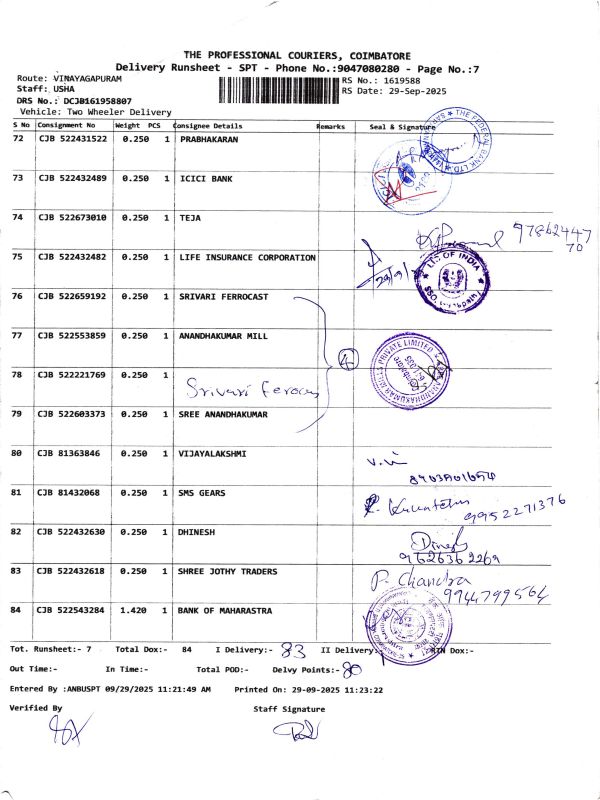 THE PROFESSIONAL COURIERS, COIMBATORE
Delivery Runsheet - SPT - Phone No.:9047080280 - Page No.:7
Route: VINAYAGAPURAM RS No.: 1619588
Staff: USHA RS Date: 29-Sep-2025
DRS No.: DCJB161958807
Vehicle: Two Wheeler Delivery
S No Consignment No Weight PCS Consignee Details Remarks Seal & Signature
72 CJB 522431522 0.250 1 PRABHAKARAN
THE FEDERAL BANK LTD.
73 CJB 522432489 0.250 1 ICICI BANK
74 CJB 522673010 0.250 1 TEJA
97862447
70
75 CJB 522432482 0.250 1 LIFE INSURANCE CORPORATION
29/9/
OF INDIA
76 CJB 522659192 0.250 1 SRIVARI FERROCAST
77 CJB 522553859 0.250 1 ANANDHAKUMAR MILL
4
ANANDHAKUMAR MILLS PRIVATE LIMITED
78 CJB 522221769 0.250 1
Srivari Ferocas
79 CJB 522603373 0.250 1 SREE ANANDHAKUMAR
80 CJB 81363846 0.250 1 VIJAYALAKSHMI
81 CJB 81432068 0.250 1 SMS GEARS
9952271376
82 CJB 522432630 0.250 1 DHINESH
Dinesh
9626362269
83 CJB 522432618 0.250 1 SHREE JOTHY TRADERS
P. Chandra
9944799564
84 CJB 522543284 1.420 1 BANK OF MAHARASTRA
Tot. Runsheet:- 7 Total Dox:- 84 I Delivery:- 83 II Delivery:- Dox:-
Out Time:- In Time:- Total POD:- Delvy Points:- 80
Entered By :ANBUSPT 09/29/2025 11:21:49 AM Printed On: 29-09-2025 11:23:22
Verified By Staff Signature